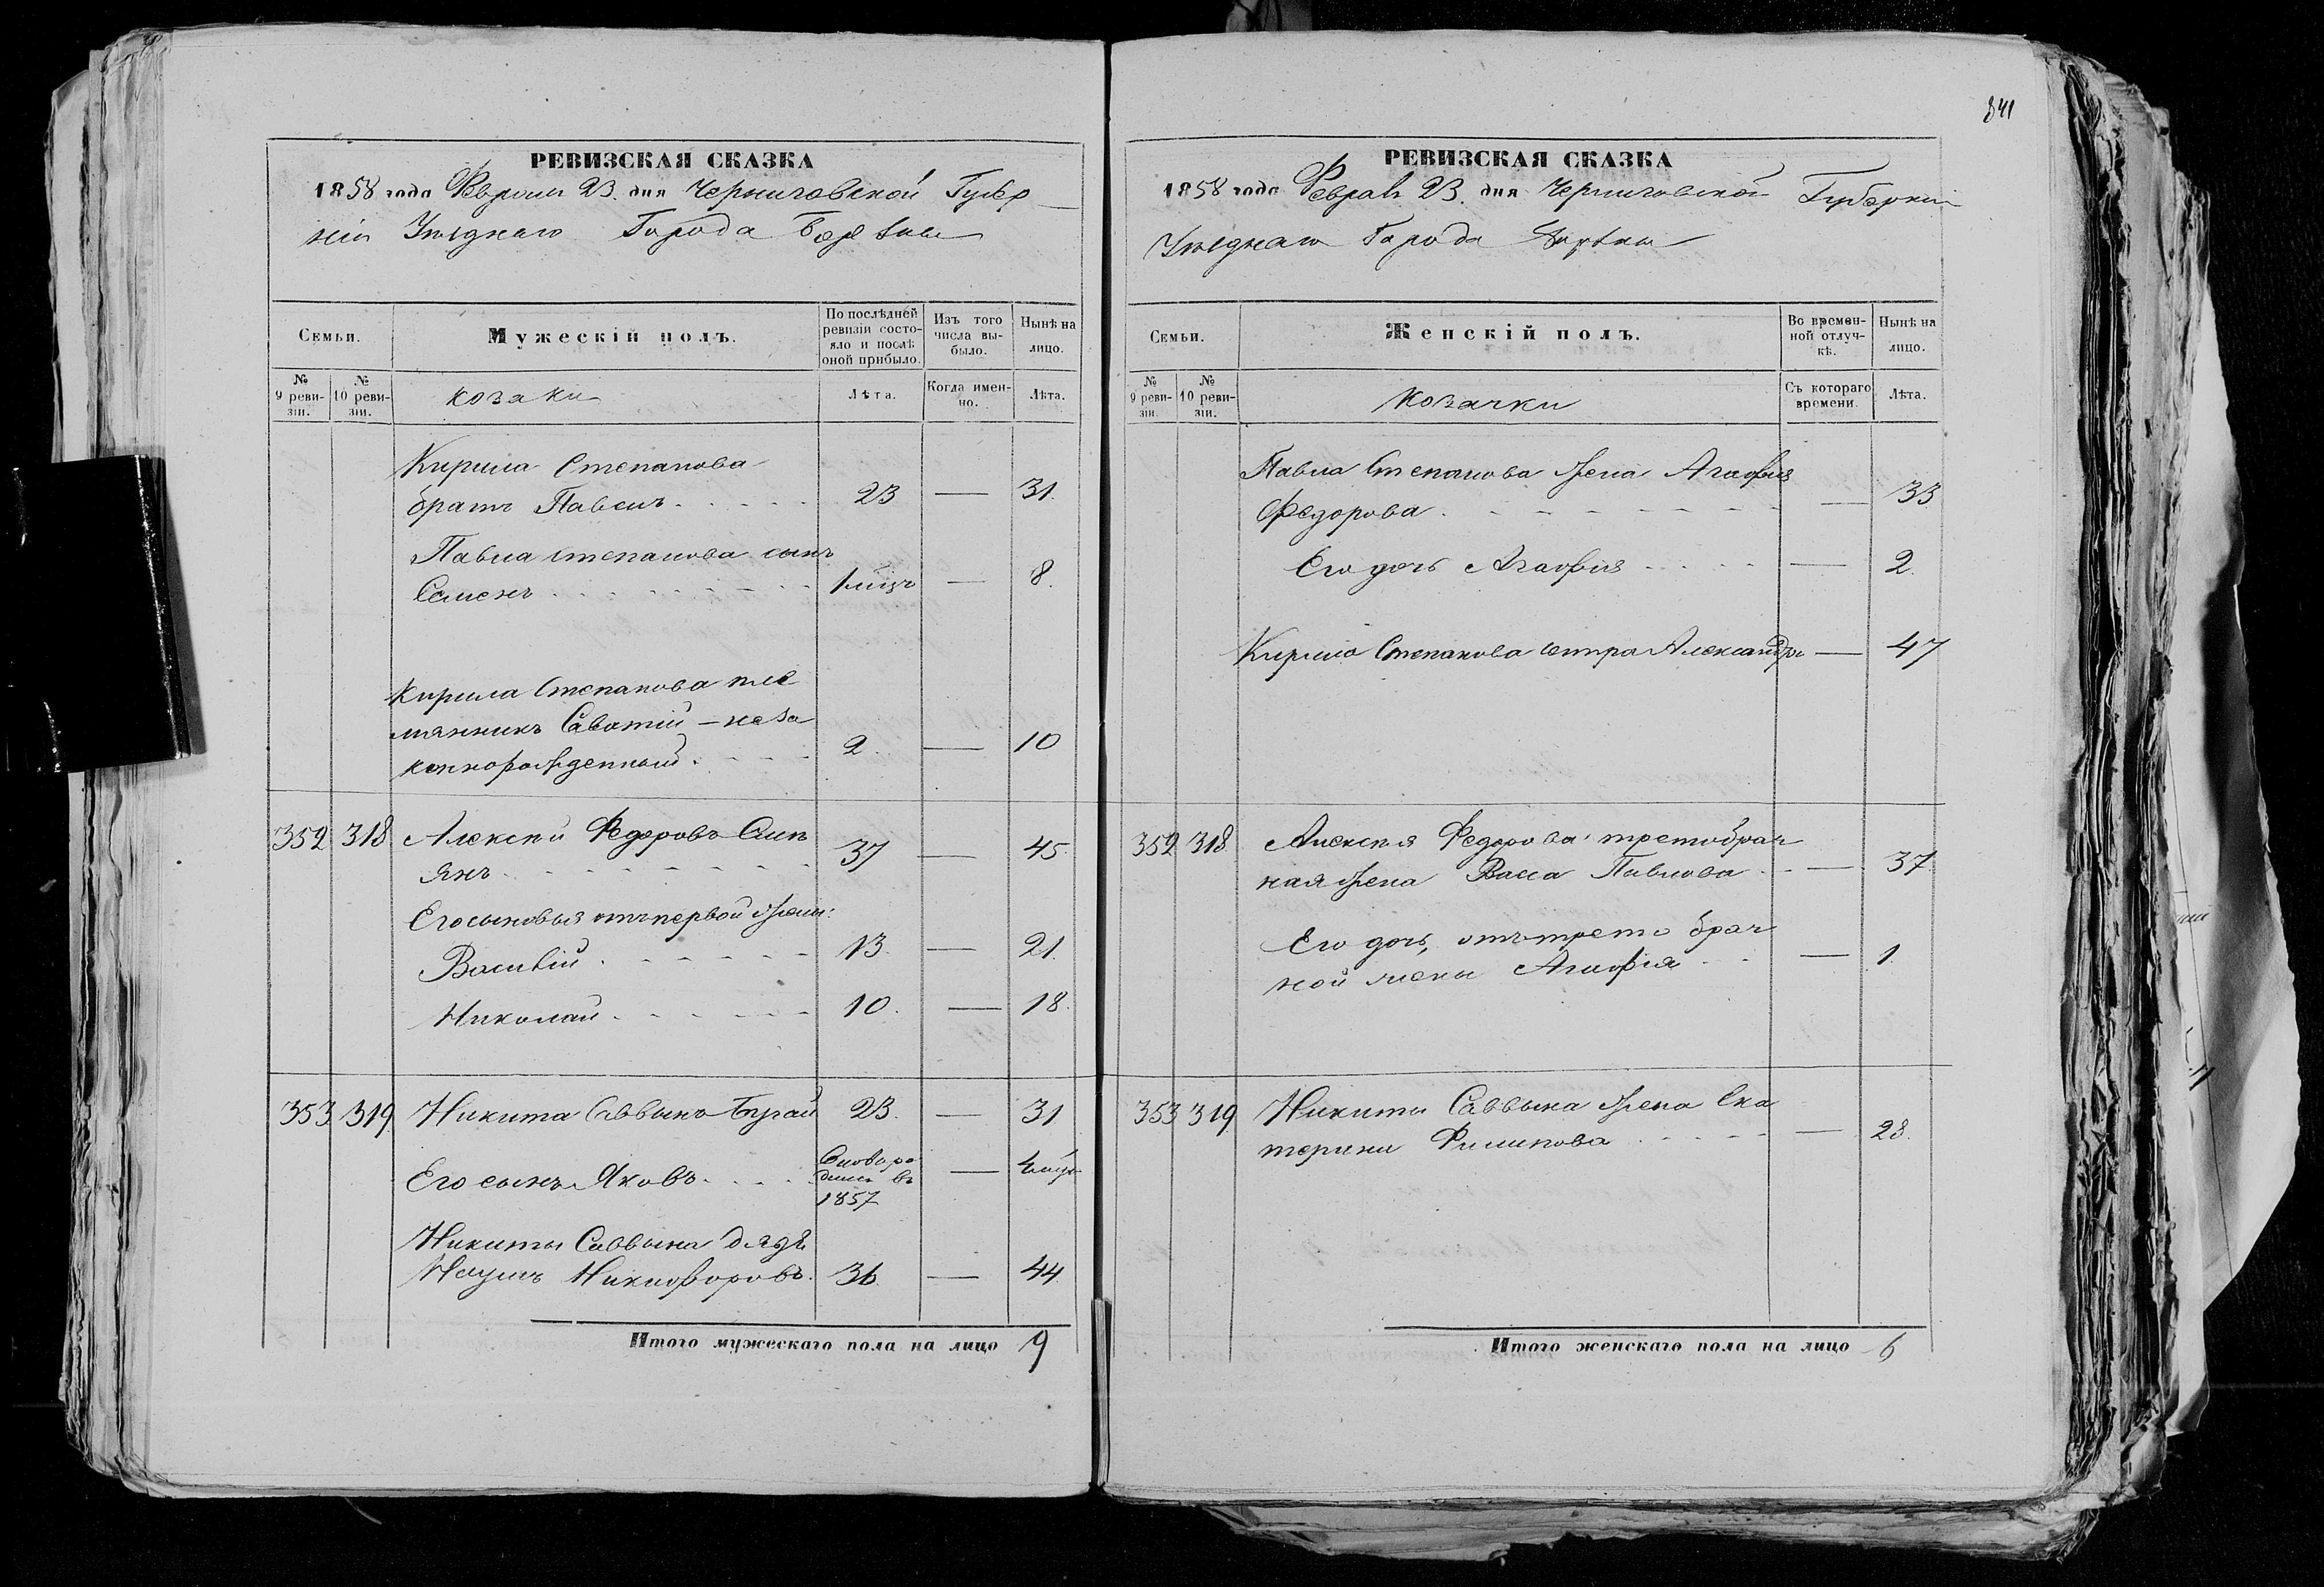 841
РЕВИЗСКАЯ СКАЗКА
1858 года Февраля 23. дня Черниговской Губер
ніи Уѣзднаго Города Борзны
Семьи.
Мужескій полъ.
По послѣдней ревизіи состояло и послѣ оной прибыло.
Изъ того числа выбыло.
Нынѣ на лицо.
№ 9 ревизіи.
№ 10 ревизіи.
козаки
Лѣта.
Когда именно.
Лѣта.
Кирила Степанова
братъ Павелъ 23 — 31.
Павла Степанова сынъ
Семенъ 1 міцъ — 8.
Кирила Степанова пле
мянникъ Саватій – неза
коннорожденный 2. — 10
352 318 Алексѣй Федоровъ
янъ 37 — 45.
Его сыновья отъ первой жены:
Василій 13 — 21.
Николай 10. — 18.
353 319 Никита Саввинъ Бугай 23. — 31
Его сынъ Яковъ
Новоро
дился въ
1857
Никиты Саввина дядя
Наумъ Никифоровъ. 36. — 44
Итого мужескаго пола на лицо 9
РЕВИЗСКАЯ СКАЗКА
1858 года Февраля 23. дня Черниговской Губерніи
Уѣзднаго Города Борзны
Семьи.
Женскій полъ.
Во временной отлучкѣ.
Нынѣ на лицо.
№ 9 ревизіи.
№ 10 ревизіи.
козачки
Съ котораго времени.
Лѣта.
Павла Степанова жена Агафія
Федорова — 33
Его дочь Агафія — 2.
Кирила Степанова сестра Александра — 47
352 318 Алексѣя Федорова третобрач
ная жена Васса Павлова — 37.
Его дочь, отъ трето брач
ной жены Агафія — 1
353 319 Никиты Саввина жена Ека
терина Филипова — 28.
Итого женскаго пола на лицо 6